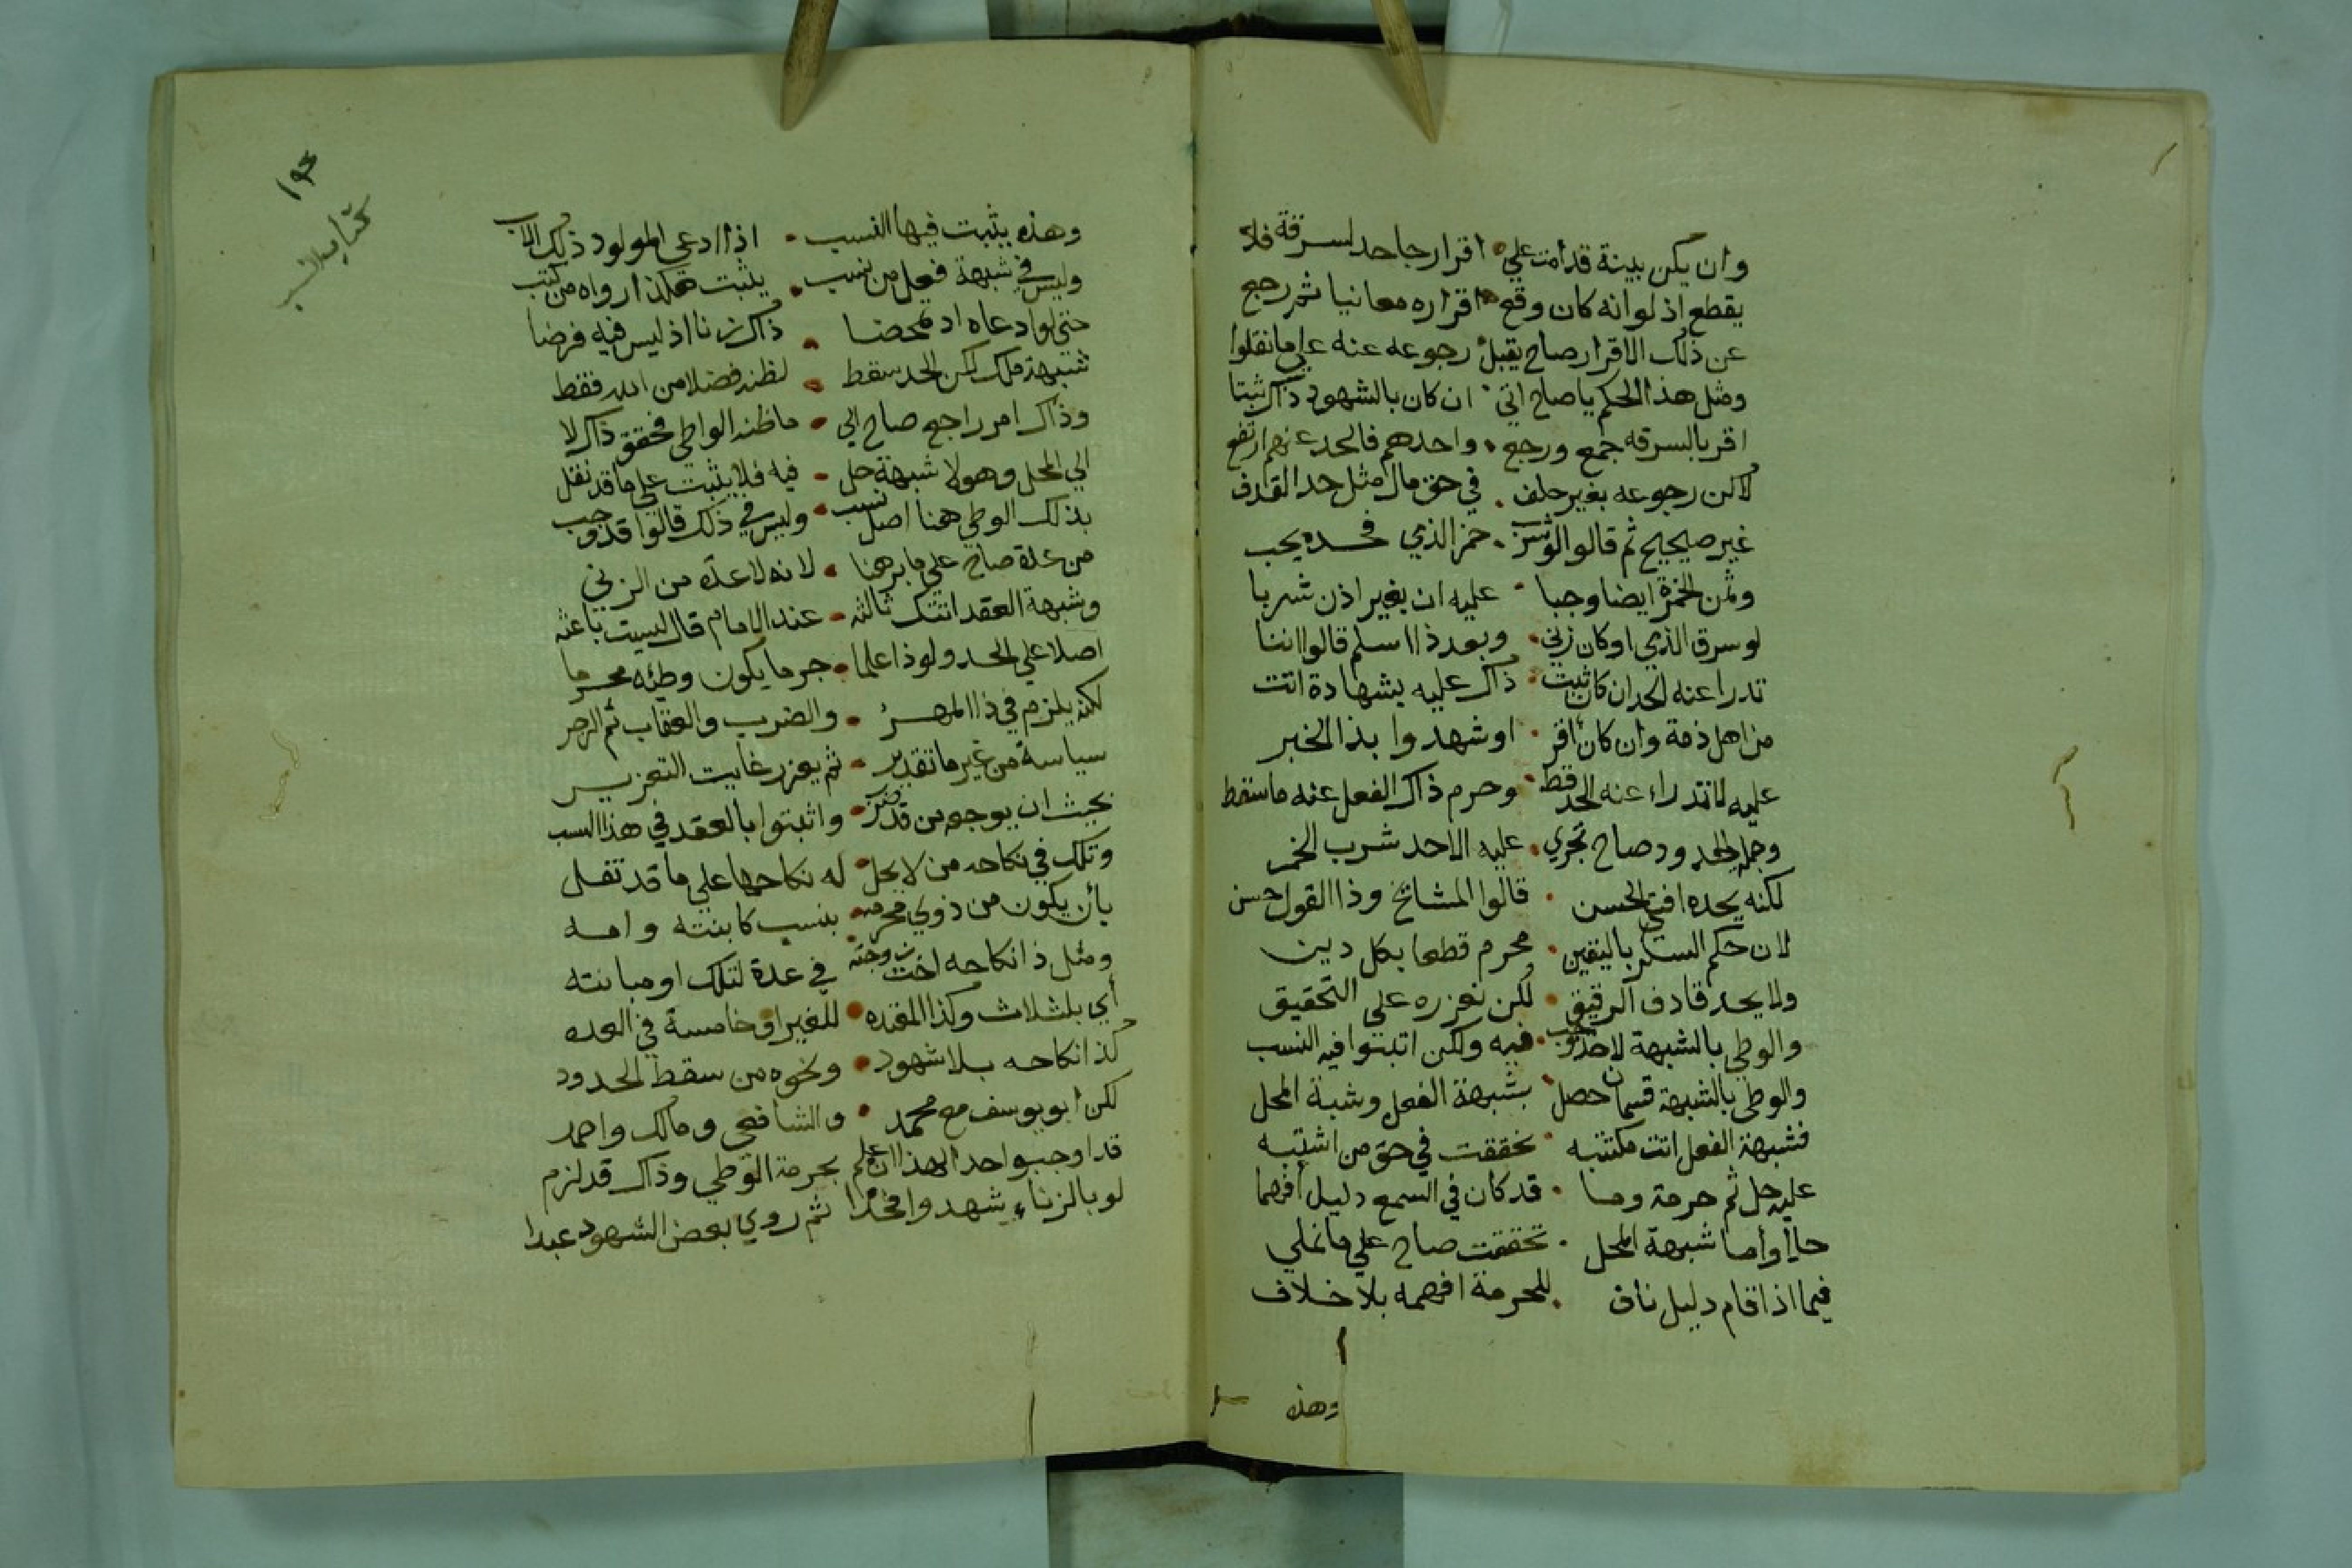 وان يكن بينة قدامت علي اقرار جاحد لسرقة فلا
يقطع اذ لو انه كان وقع اقراره معانيا ثم رجع
عن ذلك الاقرار صاح يقبل رجوعه عنه علي ما نقلوا
ومثل هذا الحكم يا صاح اتي ان كان بالشهود ذاك ثبتا
اقر بالسرقه جمع ورجع واحدهم فالحد عنهم ارتفع
لاكن رجوعه بغير حلف في حق مال مثل حد القذف
غير صحيح ثم قالوا لو شرب خمر الذي فحده يجب
وثمن الخمرة ايضا وجبا عليه ان بغير اذن شربا
لو سرق الذي او كان زني وبعد ذا اسلم قالوا اننا
ندرا عنه الحد ان كان ثبت ذاك عليه بشهادة اتت
من اهل ذمة وان كان اقر او شهدوا بذا الخبر
عليه لا تدراء عنه الحد قط وحرم ذاك الفعل عنه ما سقط
وجملة الحدود صاح تجري عليه الا حد شرب الخمر
لكنه يحده افتي الحسن قالوا المشائخ وذا القول حسن
لان حكم السكر باليقين محرم قطعا بكل دين
ولا يحد قاذف الرقيق لكن نعزره علي التحقيق
والوطي بالشبهة لا حد وجب فيه ولكن اثبتوا فيه النسب
والوطي بالشبهة قسمان حصل بشبهة الفعل وشبهة المحل
فشبهة الفعل اتت مكتبه تحققت في حق من اشتبه
عليه حل ثم حرمة وما قد كان في السمع دليل افهما
حلا واما شبهة المحل تحققت صاح علي ما نملي
فيما اذا قام دليل ناف للحرمة افهمه بلا خلاف
وهذه
١٩٤
كتاب
وهذه يثبت فيها النسب اذا ادعي المولود ذلك الاب
وليس في شبهة فعل من نسب يثبت هكذا رواه من كتب
حتي لو ادعاه اذ تمحضا ذاك زنا اذ ليس فيه فرضا
شبهة ملك لكن الحد سقط لظنه فضلا من الله فقط
وذاك امر راجع صاح الي ما ظنه الواطي فحقق ذاك لا
الي المحل وهو لا شبهة حل فيه فلا يثبت علي ما قد نقل
بذلك الوطي هنا اصل نسب وليس في ذلك قالوا قد وجب
من عدة صاح علي ما برهنا لانه لا عدة من الزني
وشبهة العقد اتتك ثالثه عند الامام قال ليست باعثه
اصلا علي الحد ولو ذا علما جرما يكون وطئه محرما
لكنه يلزم في ذا المهر والضرب والعقاب ثم الزجر
سياسة من غير ما تقدير ثم يعزر غايت التعزير
بحيث ان يوجع من قد نكر واثبتوا بالعقد في هذا النسب
وتلك في نكاحه من لا يحل له نكاحها علي ما قد نقل
بأن يكون من ذوي محرمه بنسب كابنته وامه
ومثل ذا نكاحه اخت زوجته في عدة لتلك او مبانته
أي بلثلاث وكذا المعتده للغير او خامسة في العده
كذا نكاحه بلا شهود ونحوه من سقط الحدود
لكن ابو يوسف مع محمد والشافعي ومالك واحمد
قد اوجبوا حدا لهذا ان علم بحرمة الوطي وذاك قد لزم
لو بالزناء شهدوا فحدا ثم روي بعض الشهود عبدا